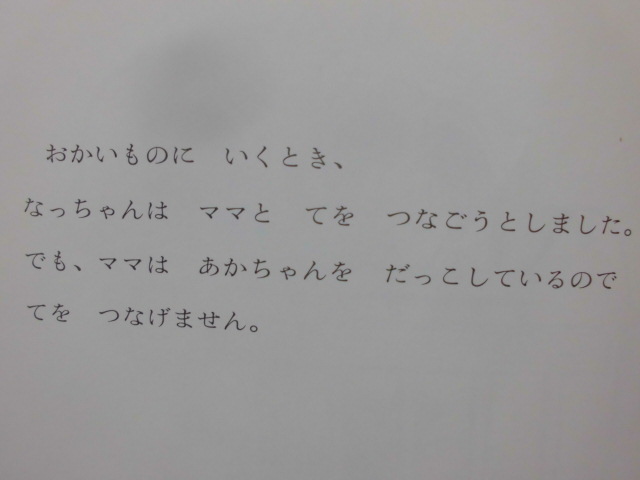 おかいものに　いくとき、
なっちゃんは　ママと　てを　つなごうとしました。
でも、ママは　あかちゃんを　だっこしているので
てを　つなげません。